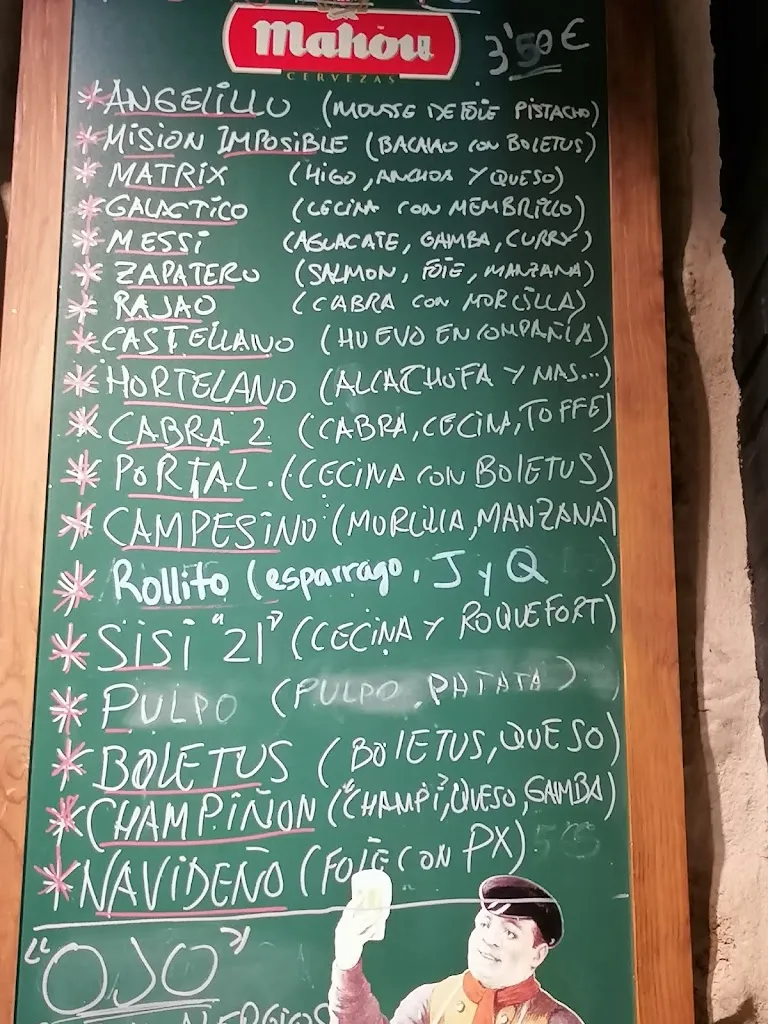 Mahou
CERVEZAS
3'50€
*ANGELILLO (MOUSSE DE FOIE PISTACHO)
*MISION IMPOSIBLE (BACALAO CON BOLETUS)
*MATRIX (HIGO, ANCHOA Y QUESO)
*GALACTICO (CECINA CON MEMBRILLO)
*MESSI (AGUACATE, GAMBA, CURRY)
*ZAPATERO (SALMON, FOIE, MANZANA)
*RAJAO (CABRA CON MORCILLA)
*CASTELLANO (HUEVO EN COMPAÑÍA)
*HORTELANO (ALCACHOFA Y MAS...)
*CABRA 2 (CABRA, CECINA, TOFFE)
*PORTAL. (CECINA CON BOLETUS)
*CAMPESINO (MORCILLA, MANZANA)
*Rollito (esparrago, J y Q)
*SISI "21" (CECINA Y ROQUEFORT)
*PULPO (PULPO, PATATA)
*BOLETUS (BOLETUS, QUESO)
*CHAMPIÑON ("CHAMPI", QUESO, GAMBA)
*NAVIDEÑO (FOIE CON PX)
"OJO"